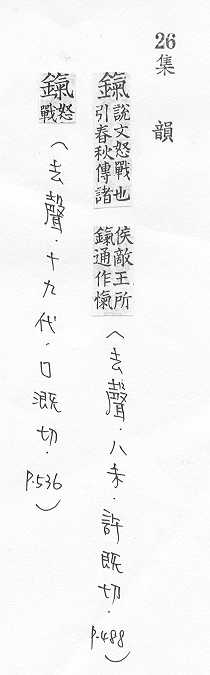 26集韻
鎎說文怒戰也引春秋傳諸侯敵王所鎎通作愾(去聲.八未.許既切.p.488)
鎎怒戰(去聲.十九代.口溉切.p.536)